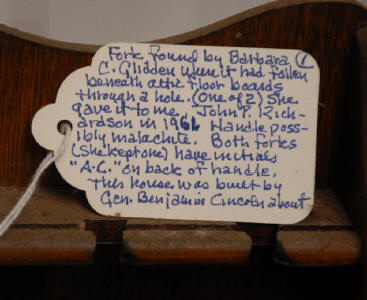 Fork found by Barbara 1
C. Glidden where it had fallen
beneath attic floor boards
through a hole. (One of 2) She
gave it to me, John P. Rich-
ardson in 1966 Handle poss-
ibly malachite. Both forks
(She kept one) have initials
"A.C." on back of handle.
This house was built by
Gen. Benjamin Lincoln about